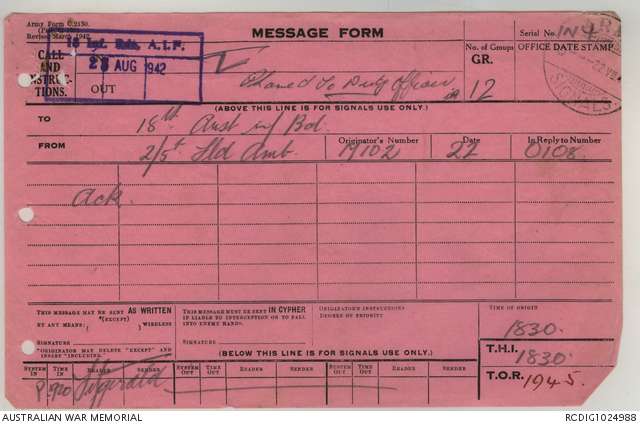 Army Form C.2130.
Revised March 1942
MESSAGE FORM
Serial No. IN 4
CALL
AND
INSTRUC-
TIONS.
A.I.F.
AUG 1942
OUT
No. of Groups
GR.
12
OFFICE DATE STAMP
SIGNALS
Phoned To Duty Officer
(ABOVE THIS LINE IS FOR SIGNALS USE ONLY.)
TO 18th Aust inf Bd.
FROM 2/5th Fld Amb. Originator's Number M102 Date 22 In Reply to Number 0108
Ack
THIS MESSAGE MAY BE SENT AS WRITTEN
(EXCEPT)
BY ANY MEANS: ( ) WIRELESS
SIGNATURE
"ORIGINATOR MAY DELETE "EXCEPT" AND
INSERT "INCLUDING."
THIS MESSAGE MUST BE SENT IN CYPHER
IF LIABLE TO INTERCEPTION OR TO FALL
INTO ENEMY HANDS.
SIGNATURE
ORIGINATOR'S INSTRUCTIONS
DEGREE OF PRIORITY
TIME OF ORIGIN
1830.
(BELOW THIS LINE IS FOR SIGNALS USE ONLY.)
T.H.I.
1830.
SYSTEM IN TIME IN READER SENDER SYSTEM OUT TIME OUT READER SENDER SYSTEM OUT TIME OUT READER SENDER
T.O.R. 1945.
Fitzgerald
AUSTRALIAN WAR MEMORIAL
RCDIG1024988